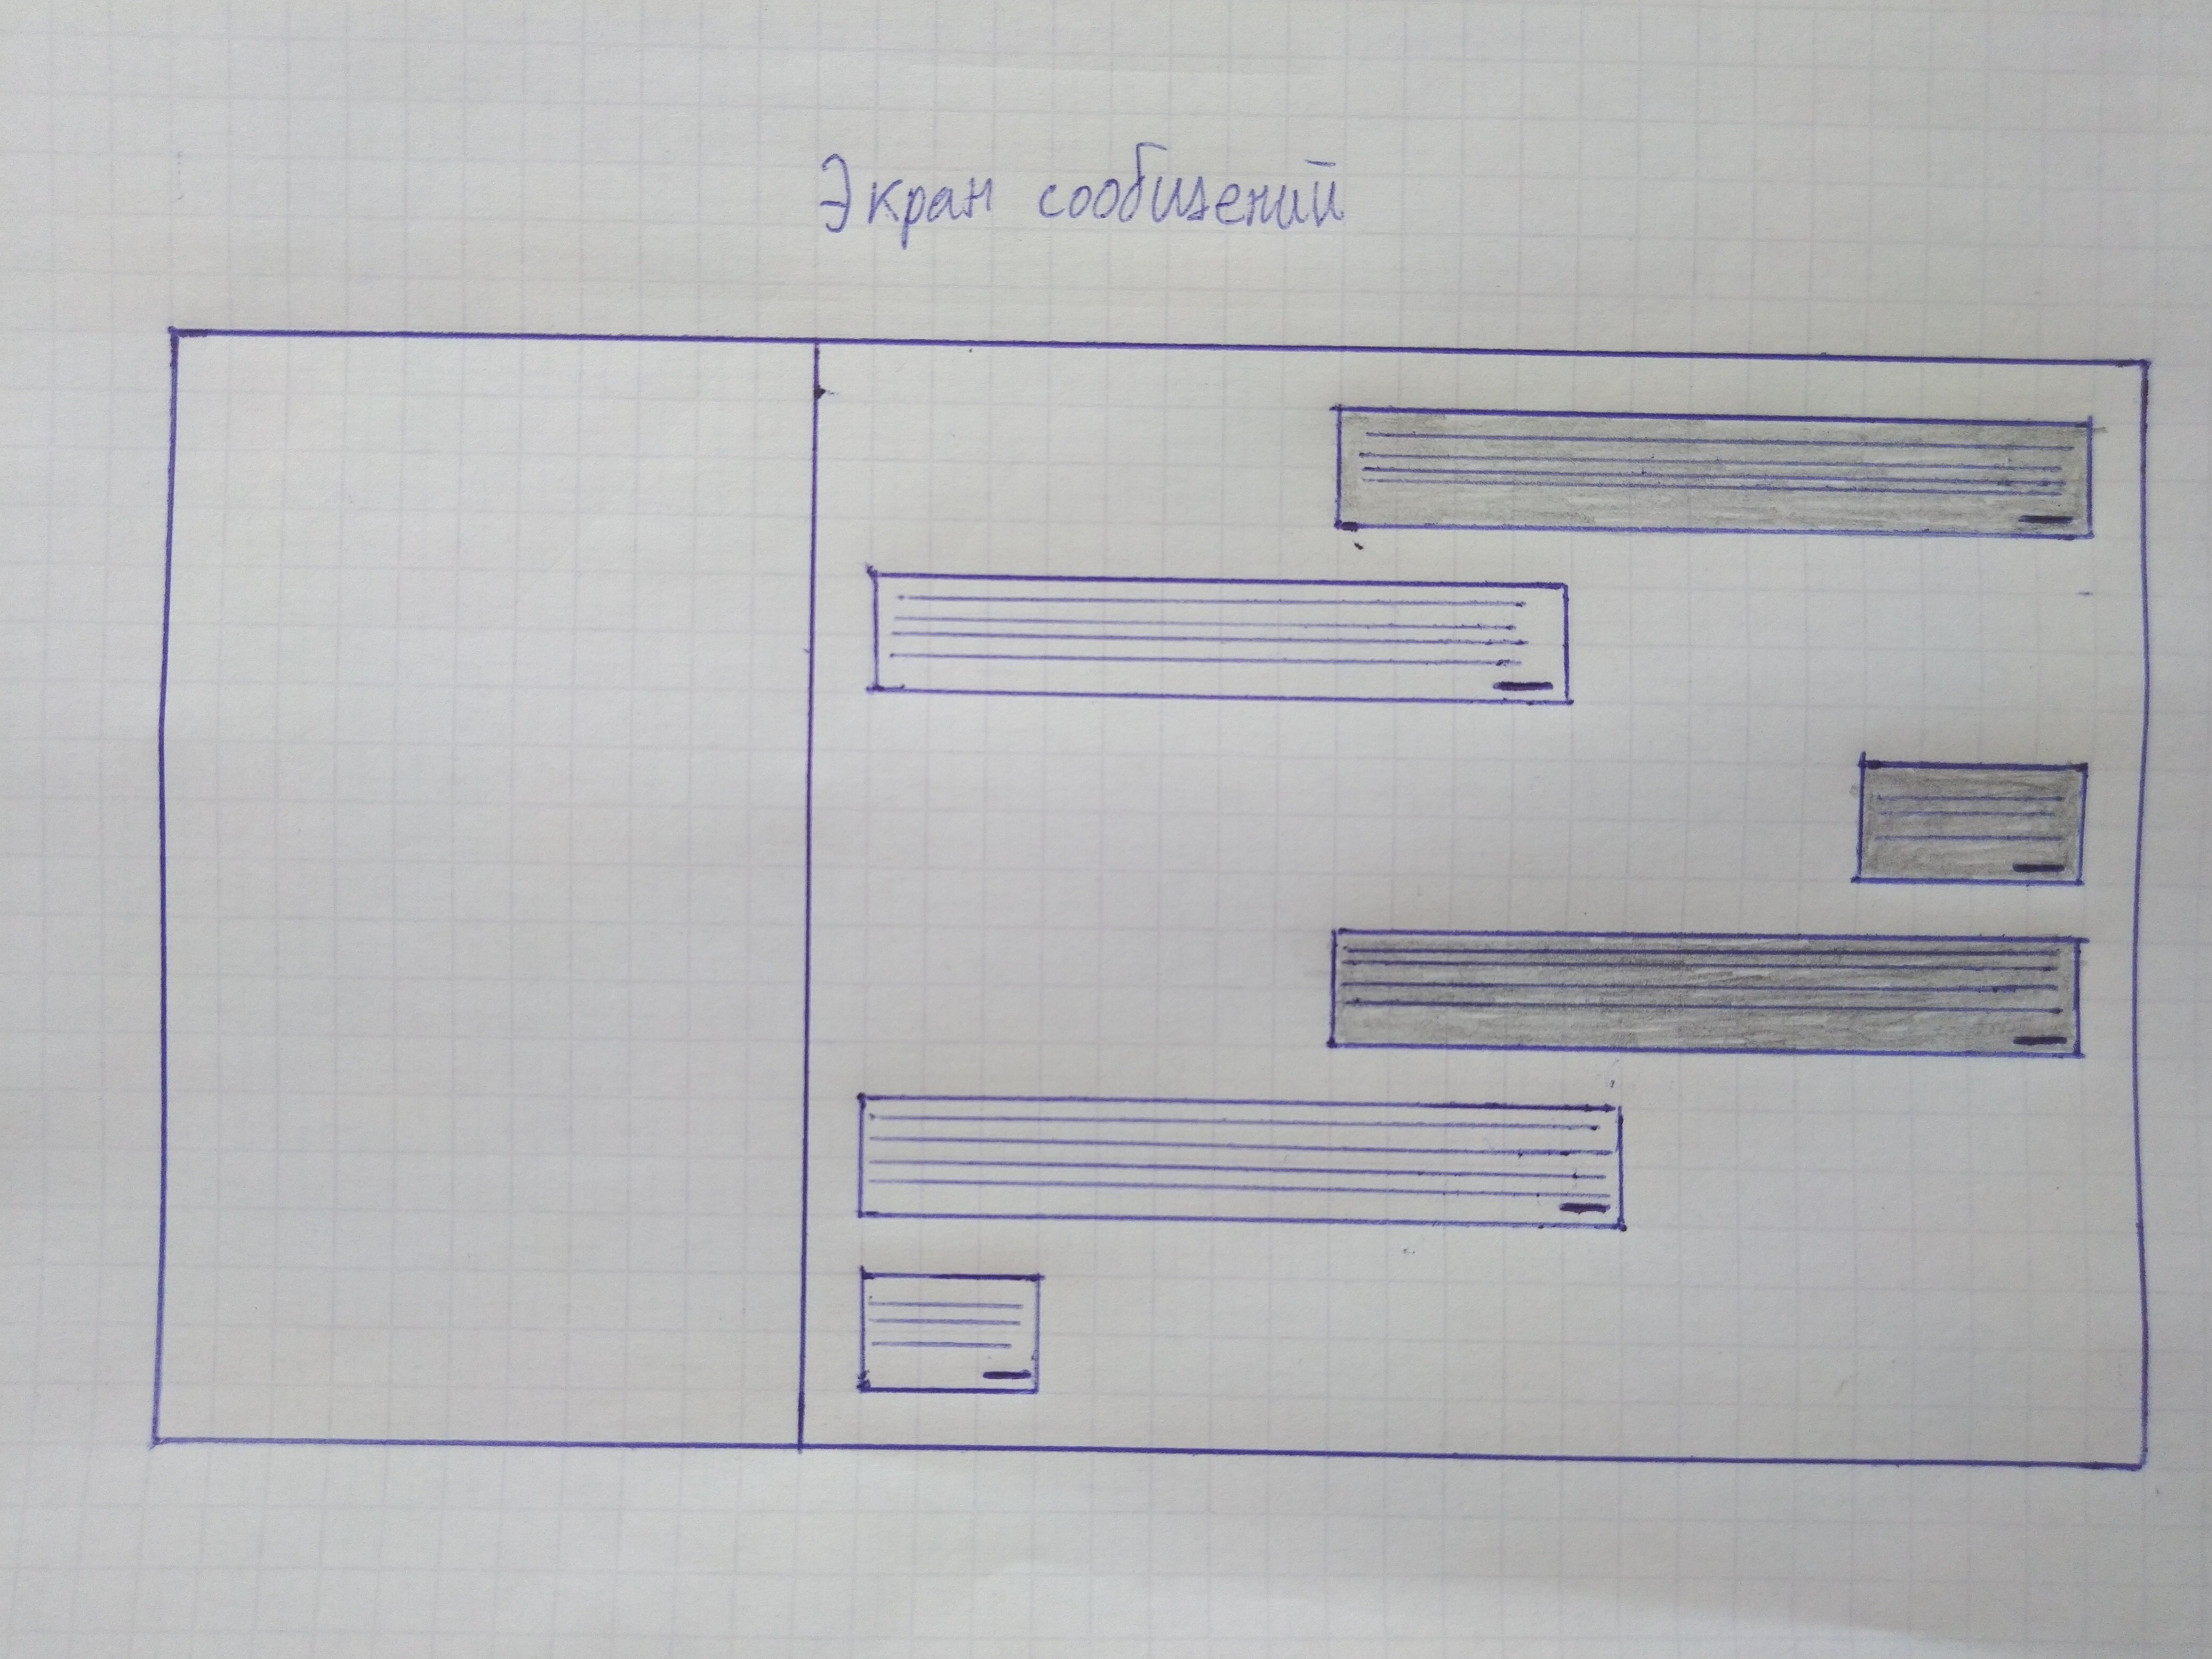 Экран сообщений